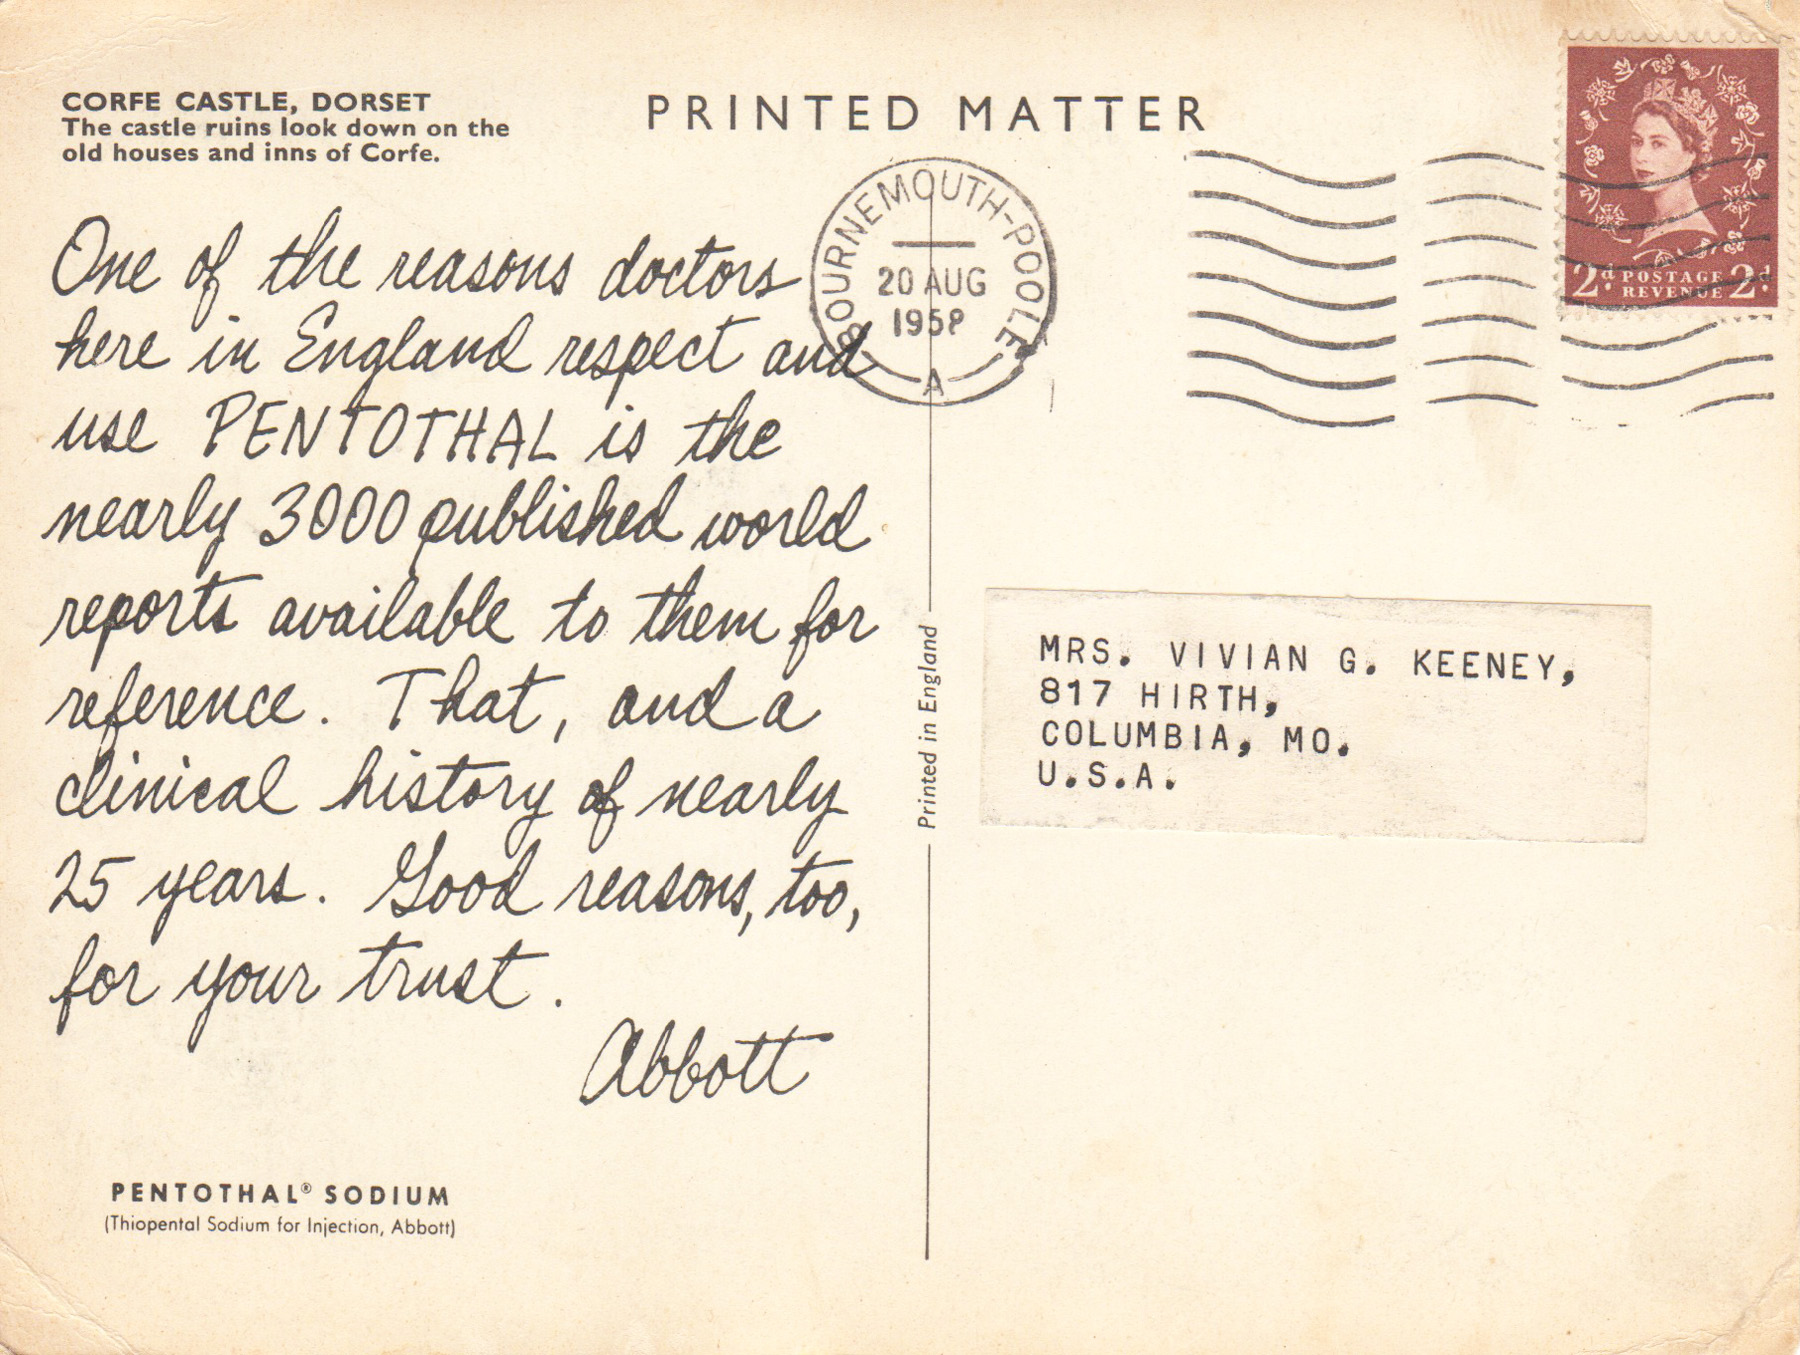 CORFE CASTLE, DORSET
The castle ruins look down on the
old houses and inns of Corfe.
PRINTED MATTER
BOURNEMOUTH-POOLE
20 AUG
1958
A
2d. POSTAGE 2d.
REVENUE
One of the reasons doctors
here in England respect and
use PENTOTHAL is the
nearly 3000 published world
reports available to them for
reference. That, and a
clinical history of nearly
25 years. Good reasons, too,
for your trust.
Abbott
PENTOTHAL® SODIUM
(Thiopental Sodium for Injection, Abbott)
Printed in England
MRS. VIVIAN G. KEENEY,
817 HIRTH,
COLUMBIA, MO.
U.S.A.